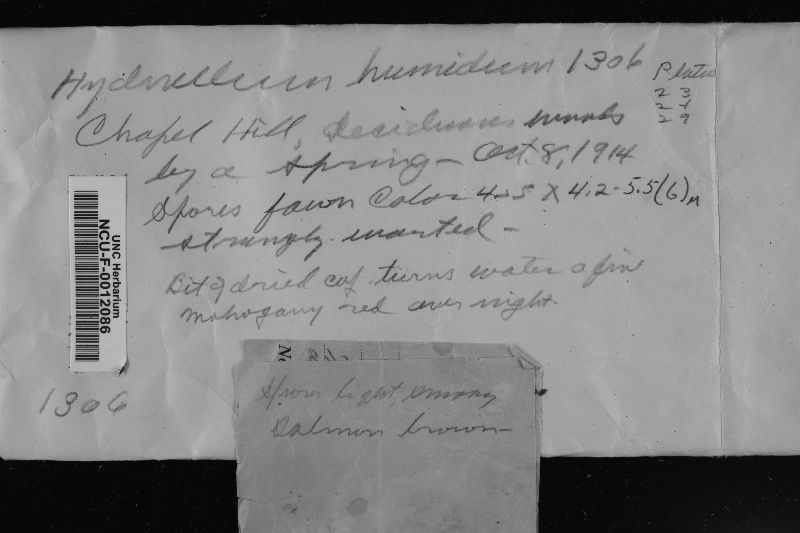 Hydnellum humidum 1306
Plates
23
24
29
Chapel Hill, Deciduous woods
by a spring - Oct. 8, 1914
Spores fawn color 4-5 X 4.2-5.5(6)µ
strongly warted -
Bit of dried cap turns water a fine
mahogany red over night.
UNC Herbarium
NCU-F-0012086
1306
Spores light smoky
Salmon brown -